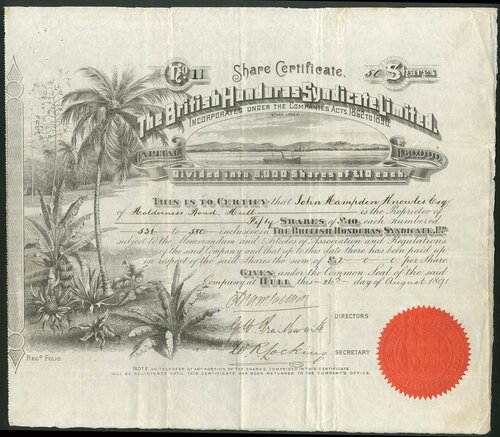 No 11
Share Certificate.
50 Shares
The British Honduras Syndicate Limited.
INCORPORATED UNDER THE COMPANIES ACTS 1862 TO 1890.
CAPITAL £60,000
Divided into 6,000 Shares of £10 each.
THIS IS TO CERTIFY that John Hampden Knowles Esq
of Holderness Road, Hull is the Proprietor of
Fifty SHARES of £10 each numbered
531 to 580 inclusive in THE BRITISH HONDURAS SYNDICATE,
subject to the Memorandum and Articles of Association and Regulations
of the said Company and that up to this date there has been paid up
in respect of the said Shares the sum of £2 - 0 - 0 per Share
GIVEN under the Common Seal of the said
Company at HULL this 26th day of August 1891
DIRECTORS
SECRETARY
REGD FOLIO
NOTE NO TRANSFER OF ANY PORTION OF THE SHARES COMPRISED IN THIS CERTIFICATE
WILL BE REGISTERED UNTIL THIS CERTIFICATE HAS BEEN RETURNED TO THE COMPANY'S OFFICE.